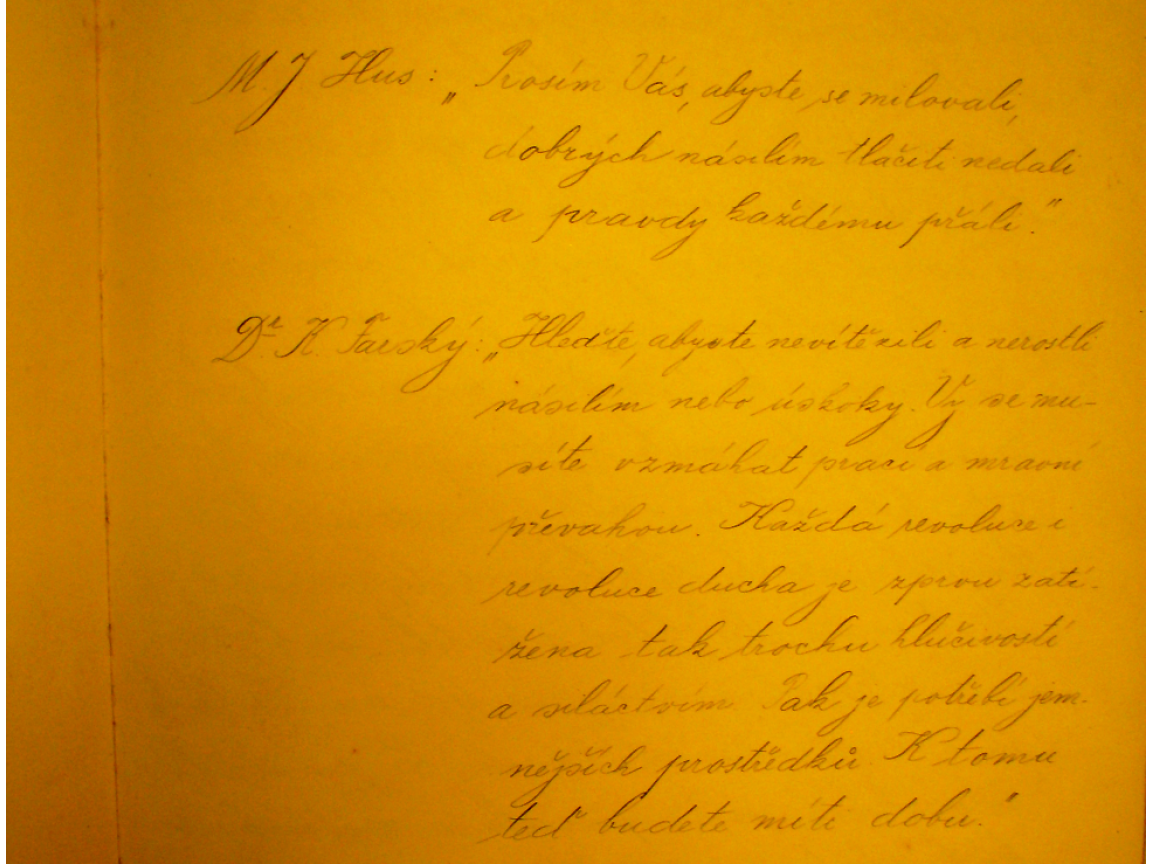 M. J Hus: „Prosím Vás, abyste se milovali,
dobrých násilím tlačiti nedali
a pravdy každému přáli."
Dr. K. Farský: „Hleďte, abyste nevítězili a nerostli
násilím nebo úskoky. Vy se mu-
síte vzmáhat prací a mravní
převahou. Každá revoluce i
revoluce ducha je zprvu zatí-
žena tak trochu hlučivostí
a siláctvím. Pak je potřebí jem-
nějších prostředků. K tomu
teď budete míti dobu."